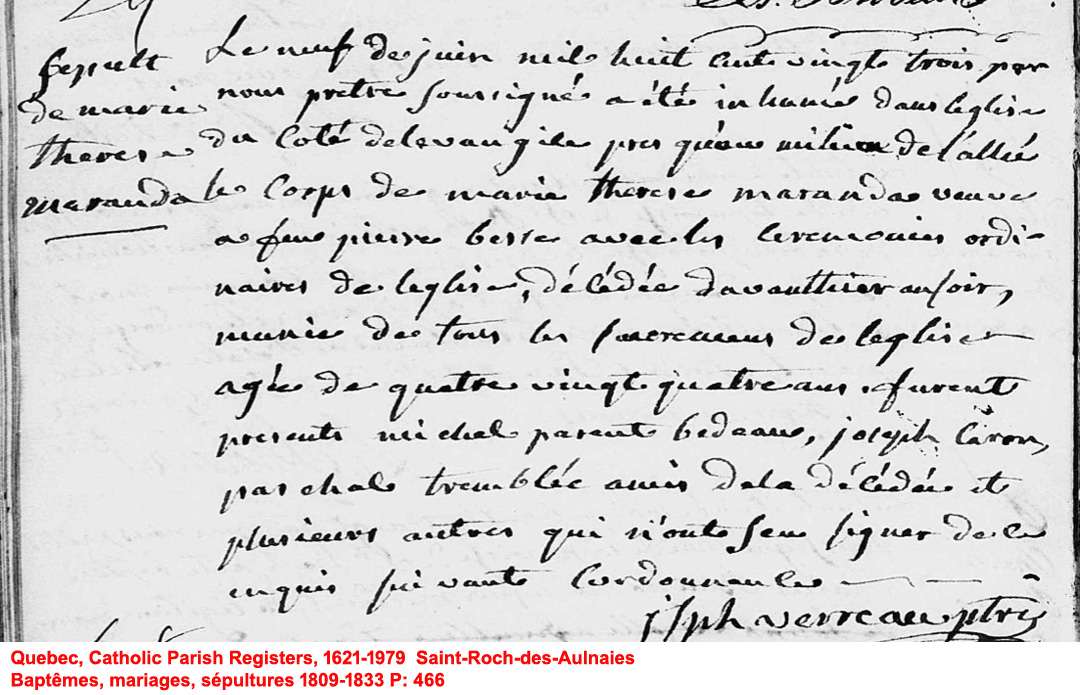 sepult
de marie
therese
maranda
Le neuf de juin mil huit cent vingt trois par
nous pretre soussigné a été inhumée dans leglise
du coté delevangile pres qu'au milieu de l'allée
le corps de marie therese maranda veuve
a feu pierre besse avec les ceremonies ordi-
naires de leglise, décédée davanthier au soir,
munie de tous les sacremens de leglise
agée de quatre vingt quatre ans. furent
presents michel parent bedeau, joseph Caron,
paschal tremblée amis dela décédée et
plusieurs autres qui n'ont seu signer de ce
enquis suivant lordonnance
jsph verreau ptre
Quebec, Catholic Parish Registers, 1621-1979 Saint-Roch-des-Aulnaies
Baptêmes, mariages, sépultures 1809-1833 P: 466